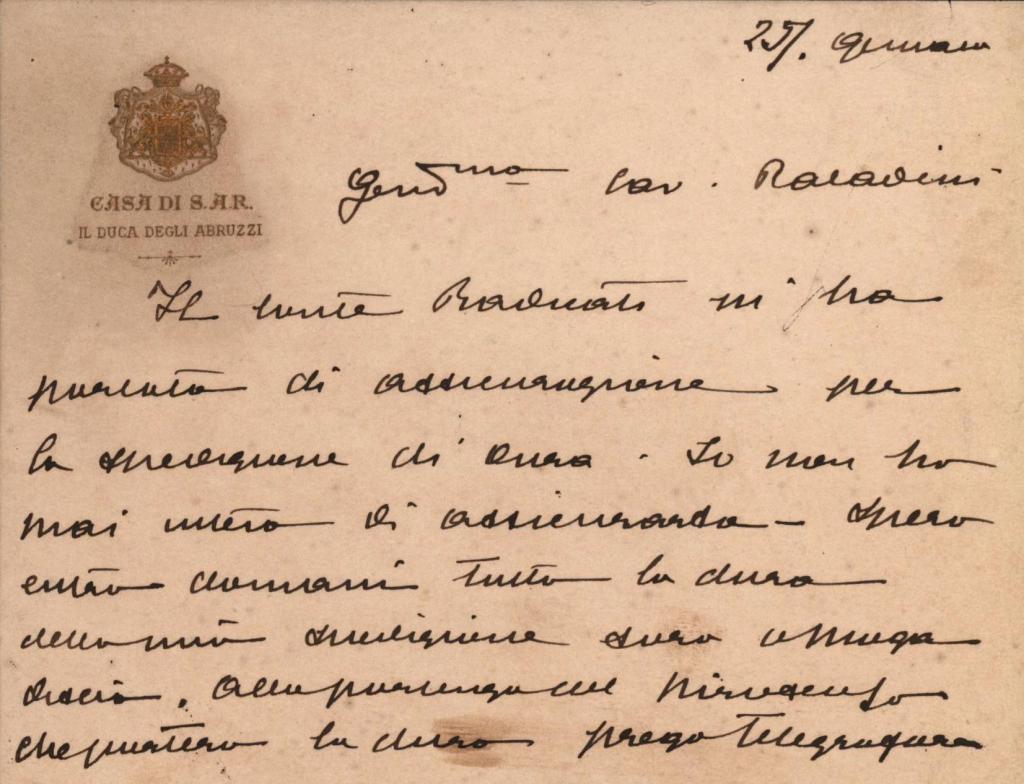 25/. Gennaio
CASA DI S.A.R.
IL DUCA DEGLI ABRUZZI
Gent.mo Cav. Paladini
Il conte mi ha
parlato di assicurazione per
la spedizione di dura. Io non ho
mai inteso di assicurarla - Spero
entro domani tutta la dura
della mia spedizione sarà a Moga
discio. Alla partenza del piroscafo
che porterà la dura prego telegrafare